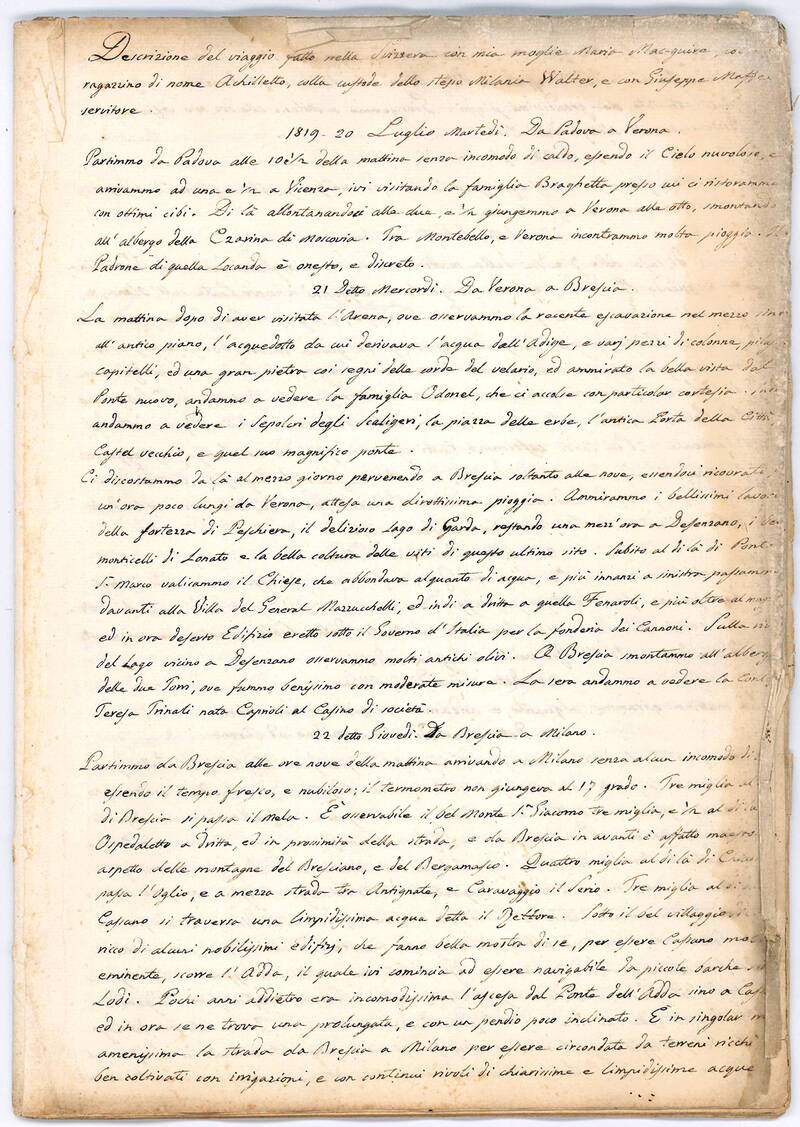 Descrizione del viaggio fatto nella Svizzera con mia moglie Maria Macquire, col
ragazzino di nome Achilletto, colla custode dello stesso Milania Walter, e con Giuseppe
servitore.
1819-20 Luglio Martedì. Da Padova a Verona.
Partimmo da Padova alle 10 e 1/2 della mattina senza incomodo di caldo, essendo il Cielo nuvoloso, e
arrivammo ad una e 1/2 a Vicenza, ivi visitando la famiglia Braghetta, presso cui ci ristorammo
con ottimi cibi. Di là allontanandoci alle due, e 1/2 giungemmo a Verona alle otto, smontando
all'albergo della Czarina di Moscovia. Tra Montebello, e Verona incontrammo molta pioggia. Il
Padrone di quella Locanda è onesto, e discreto.
21 Detto Mercordì. Da Verona a Brescia.
La mattina dopo di aver visitata l'Arena, ove osservammo la recente escavazione nel mezzo sino
all'antico piano, l'acquedotto da cui derivava l'acqua dall'Adige, e varj pezzi di colonne,
capitelli, ed una gran pietra coi segni delle corde del velario, ed ammirato la bella vista dal
Ponte nuovo, andammo a vedere la famiglia Odonel, che ci accolse con particolar cortesia.
andammo a vedere i Sepolcri degli Scaligeri, la piazza delle erbe, l'antica Porta della Città
Castel vecchio, e quel suo magnifico ponte.
Ci discostammo da là al mezzo giorno pervenendo a Brescia soltanto alle nove, essendoci ricovrati
un'ora poco lungi da Verona, attesa una dirottissima pioggia. Ammirammo i bellissimi lavori
della fortezza di Peschiera, il delizioso Lago di Garda, restando una mezz'ora a Desenzano, i
monticelli di Lonato e la bella coltura delle viti di questo ultimo sito. Subito al di là di Ponte
S. Marco valicammo il Chiese, che abbondava alquanto di acqua, e più innanzi a sinistra passammo
davanti alla Villa del General Mazzucchelli, ed indi a dritta a quella Fenaroli, e più oltre al
ed in ora deserto Edifizio eretto sotto il Governo d'Italia per la fonderia dei Cannoni. Sulla
del Lago vicino a Desenzano osservammo molti antichi olivi. A Brescia smontammo all'albergo
delle due Torri, ove fummo benissimo con moderate misure. La sera andammo a vedere la Cont.
Teresa Trinati nata Caprioli al Casino di società.
22 detto Giovedì. Da Brescia a Milano.
Partimmo da Brescia alle ore nove della mattina arrivando a Milano senza alcun incomodo di
essendo il tempo fresco, e nubiloso; il termometro non giungeva al 17 grado. Tre miglia al
di Brescia si passa il Mela. È osservabile il bel Monte S. Giacomo tre miglia, e 1/2 al di là
Ospedaletto a dritta, ed in prossimità della strada; e da Brescia in avanti è affatto
aspetto delle montagne del Bresciano, e del Bergamasco. Quattro miglia al di là di
passa l'Oglio, e a mezza strada tra Antignate, e Caravaggio il Serio. Tre miglia al di
Cassano si traversa una limpidissima acqua detta il Rettore. Sotto il bel villaggio
ricco di alcuni nobilissimi edifizj, che fanno bella mostra di se, per essere Cassano
eminente, scorre l'Adda, il quale ivi comincia ad essere navigabile da piccole barche
Lodi. Pochi anni addietro era incomodissima l'ascesa dal Ponte dell'Adda sino a
ed in ora se ne trova una prolungata, e con un pendio poco inclinato. È in singolar
amenissima la strada da Brescia a Milano per essere circondata da terreni ricchi
ben coltivati con irrigazioni, e con continui rivoli di chiarissime e limpidissime acque